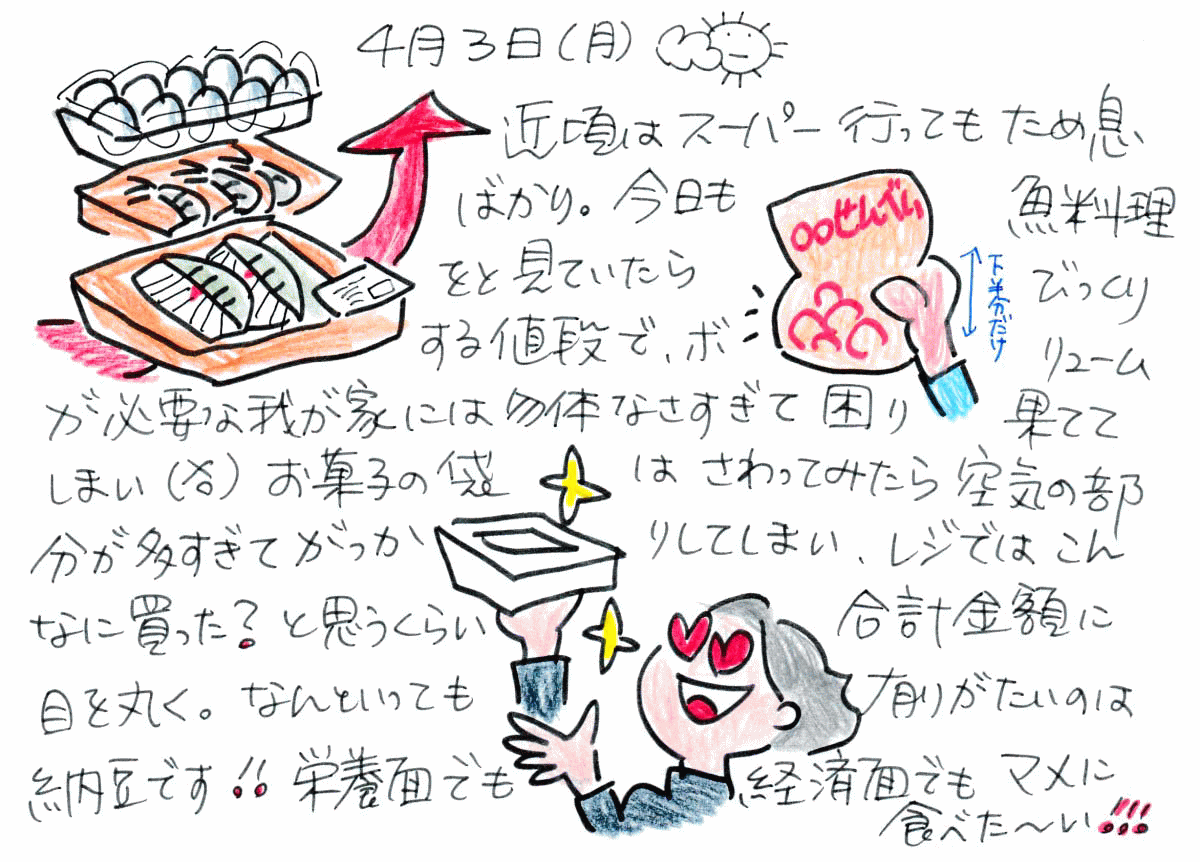 4月3日(月)
近頃はスーパー行ってもため息
ばかり。今日も 魚料理
をと見ていたら びっくり
する値段で、ボ リューム
が必要な我が家には勿体なさすぎて困り果てて
しまい(涙)お菓子の袋はさわってみたら空気の部
分が多すぎてがっかりしてしまい、レジではこん
なに買った?と思うくらい合計金額に
目を丸く。なんといっても有りがたいのは
納豆です!!栄養面でも経済面でもマメに
食べた〜い!!!
〇〇せんべい
下半分だけ